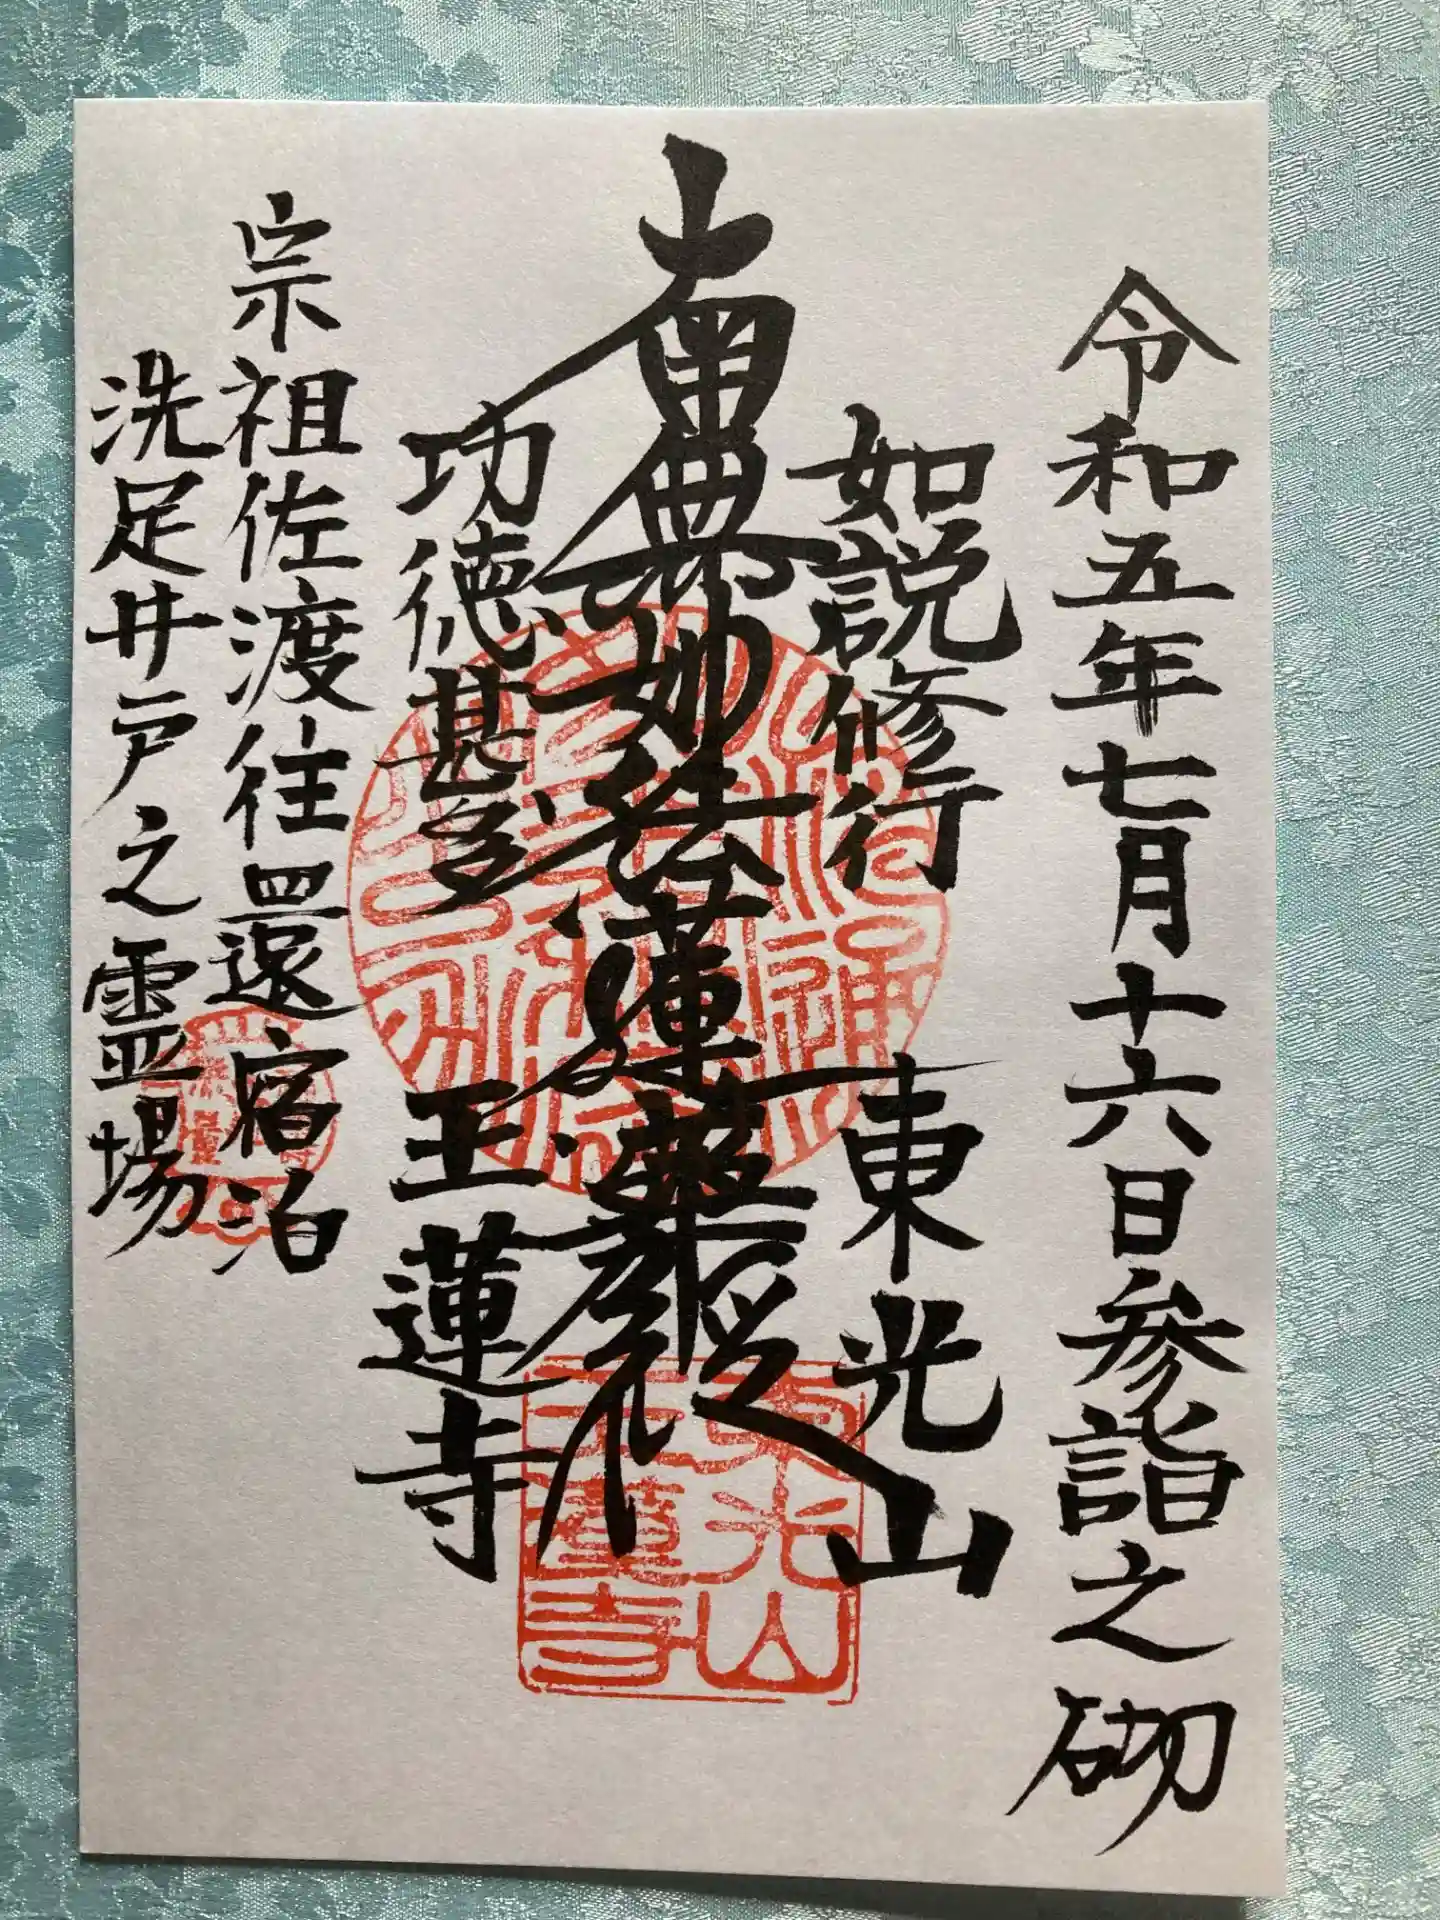 令和五年七月十六日参詣之砌
如説修行
東光山
南無妙法蓮華経
功徳甚多
王蓮寺
宗祖佐渡往還宿泊
洗足井戸之霊場
東光山
王蓮寺